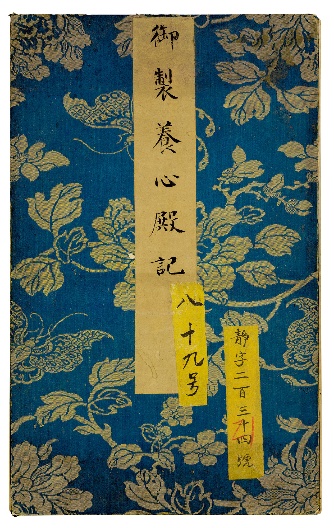 御製養心殿記
八十九号
静字二百三十四號